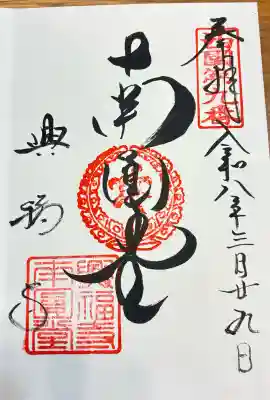 奉拝
令和八年三月廿九日
西国第九番
南圓堂
興福寺
興福寺
南圓堂